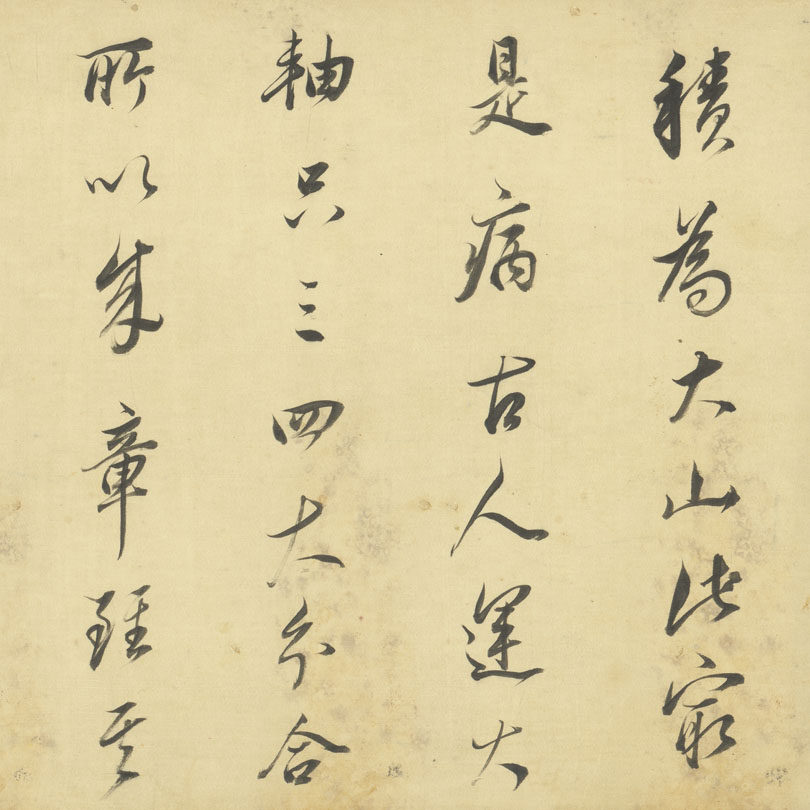 積為大山此最
是病古人運大
軸只三四大分合
所以成章雖其